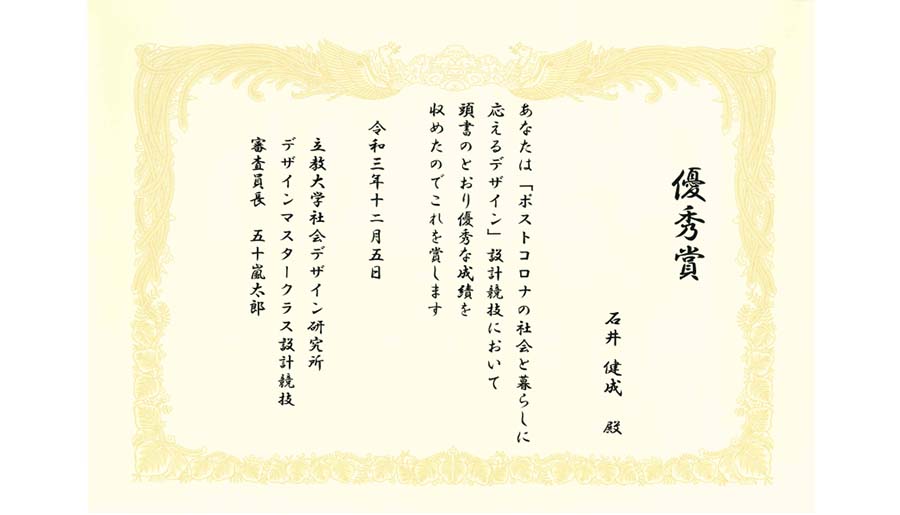 優秀賞
石井 健成 殿
あなたは「ポストコロナの社会と暮らしに
応えるデザイン」設計競技において
頭書のとおり優秀な成績を
収めたのでこれを賞します
令和三年十二月五日
立教大学社会デザイン研究所
デザインマスタークラス設計競技
審査員長 五十嵐太郎